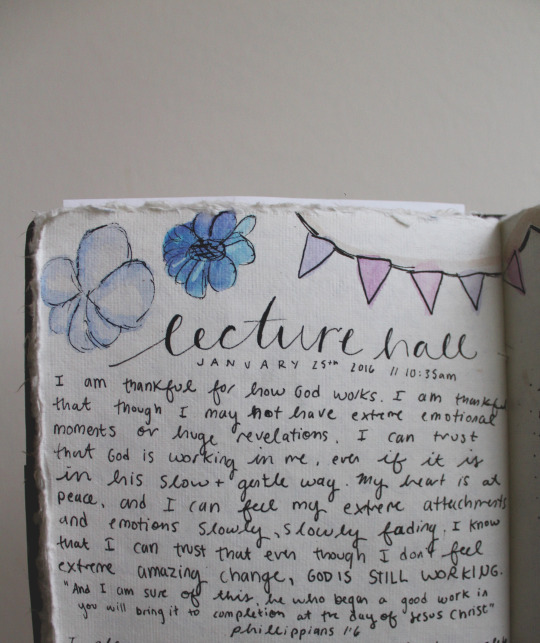 lecture hall
JANUARY 25th 2016 // 10:35am
I am thankful for how God works. I am thankful
that though I may not have extreme emotional
moments or huge revelations, I can trust
that God is working in me, even if it is
in his slow + gentle way. My heart is at
peace, and I can feel my extreme attachments
and emotions slowly, slowly fading. I know
that I can trust that even though I don't feel
extreme amazing change, GOD IS STILL WORKING.
"And I am sure of this, he who began a good work in
you will bring it to completion at the day of Jesus Christ"
phillippians 1:6